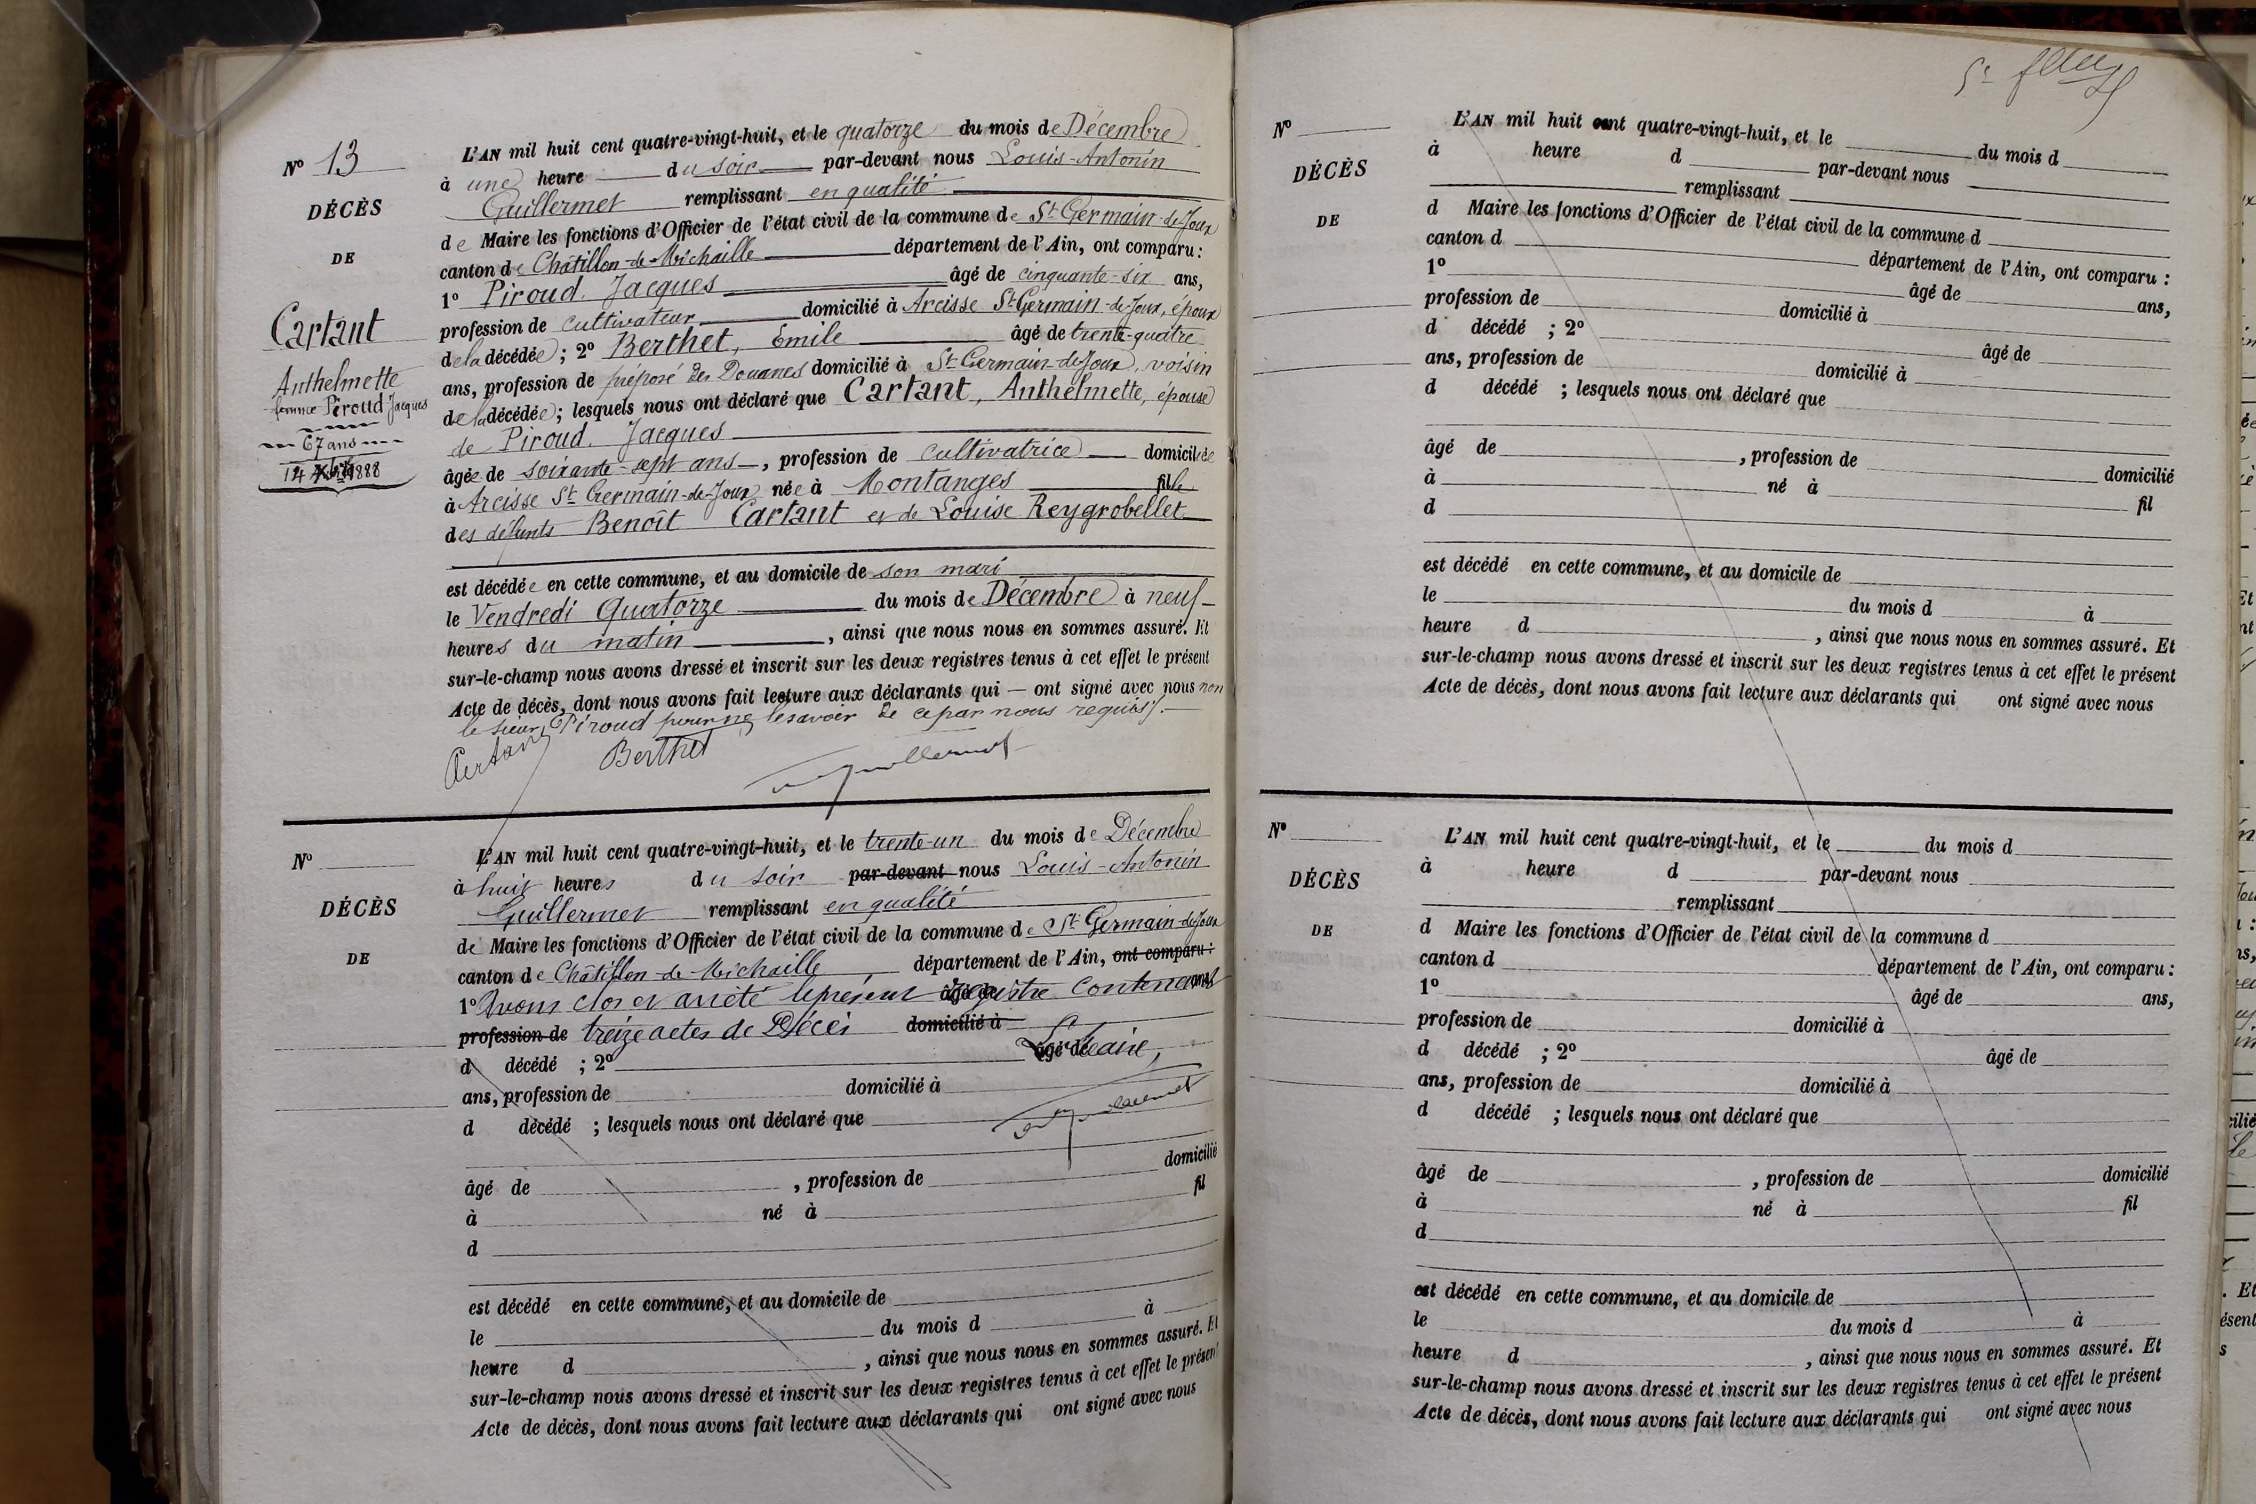 N° 13
DÉCÈS
DE
Cartant
Anthelmette
femme Piroud Jacques
67 ans
14 1888
L'AN mil huit cent quatre-vingt-huit, et le quatorze du mois de Décembre
à une heure du soir par-devant nous Louis-Antonin
Guillermet remplissant en qualité
de Maire les fonctions d'Officier de l'état civil de la commune de St Germain-de-Joux
canton de Châtillon-de-Michaille département de l'Ain, ont comparu :
1° Piroud Jacques âgé de cinquante-six ans,
profession de cultivateur domicilié à Arcisse St-Germain-de-Joux, époux
de la décédée ; 2° Berthet, Emile âgé de trente-quatre
ans, profession de préposé des Douanes domicilié à St Germain-de-Joux, voisin
de la décédée ; lesquels nous ont déclaré que Cartant, Anthelmette, épouse
de Piroud Jacques
âgée de soixante-sept ans, profession de cultivatrice domiciliée
à Arcisse St Germain-de-Joux née à Montanges fille
des défunts Benoît Cartant et de Louise Reygrobellet
est décédée en cette commune, et au domicile de son mari
le Vendredi Quatorze du mois de Décembre à neuf
heures du matin, ainsi que nous nous en sommes assuré. Et
sur-le-champ nous avons dressé et inscrit sur les deux registres tenus à cet effet le présent
Acte de décès, dont nous avons fait lecture aux déclarants qui — ont signé avec nous non
le sieur Piroud pour ne le savoir de ce par nous requis.
Cartan Berthet Guillermet
N°
DÉCÈS
DE
L'AN mil huit cent quatre-vingt-huit, et le trente-un du mois de Décembre
à huit heures du soir par-devant nous Louis-Antonin
Guillermet remplissant en qualité
de Maire les fonctions d'Officier de l'état civil de la commune de St Germain-de-Joux
canton de Châtillon-de-Michaille département de l'Ain, ont comparu :
1° Avons clos et arrêté le présent âgé de registre contenant ans,
profession de treize actes de Décès domicilié à
d décédé ; 2° âgé de Le Maire,
ans, profession de domicilié à
d décédé ; lesquels nous ont déclaré que Guillermet
âgé de , profession de domicilié
à né à fil
d
est décédé en cette commune, et au domicile de
le du mois d à
heure d , ainsi que nous nous en sommes assuré. Et
sur-le-champ nous avons dressé et inscrit sur les deux registres tenus à cet effet le présent
Acte de décès, dont nous avons fait lecture aux déclarants qui ont signé avec nous
N°
DÉCÈS
DE
L'AN mil huit cent quatre-vingt-huit, et le du mois d
à heure d par-devant nous
remplissant
d Maire les fonctions d'Officier de l'état civil de la commune d
canton d département de l'Ain, ont comparu :
1° âgé de ans,
profession de domicilié à
d décédé ; 2° âgé de
ans, profession de domicilié à
d décédé ; lesquels nous ont déclaré que
âgé de , profession de domicilié
à né à fil
d
est décédé en cette commune, et au domicile de
le du mois d à
heure d , ainsi que nous nous en sommes assuré. Et
sur-le-champ nous avons dressé et inscrit sur les deux registres tenus à cet effet le présent
Acte de décès, dont nous avons fait lecture aux déclarants qui ont signé avec nous
N°
DÉCÈS
DE
L'AN mil huit cent quatre-vingt-huit, et le du mois d
à heure d par-devant nous
remplissant
d Maire les fonctions d'Officier de l'état civil de la commune d
canton d département de l'Ain, ont comparu :
1° âgé de ans,
profession de domicilié à
d décédé ; 2° âgé de
ans, profession de domicilié à
d décédé ; lesquels nous ont déclaré que
âgé de , profession de domicilié
à né à fil
d
est décédé en cette commune, et au domicile de
le du mois d à
heure d , ainsi que nous nous en sommes assuré. Et
sur-le-champ nous avons dressé et inscrit sur les deux registres tenus à cet effet le présent
Acte de décès, dont nous avons fait lecture aux déclarants qui ont signé avec nous